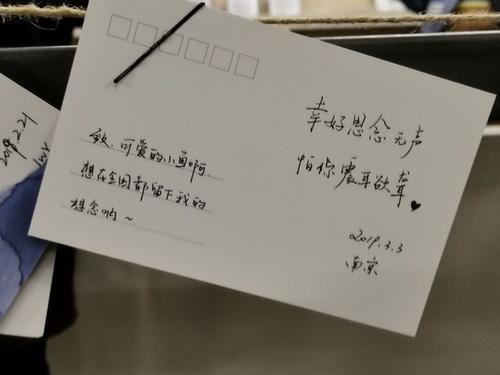 2019.2.21
可爱的小啊
想在全国都留下我的
想念哟~
幸好思念无声
怕你震耳欲聋♥
2019.3.3
南京